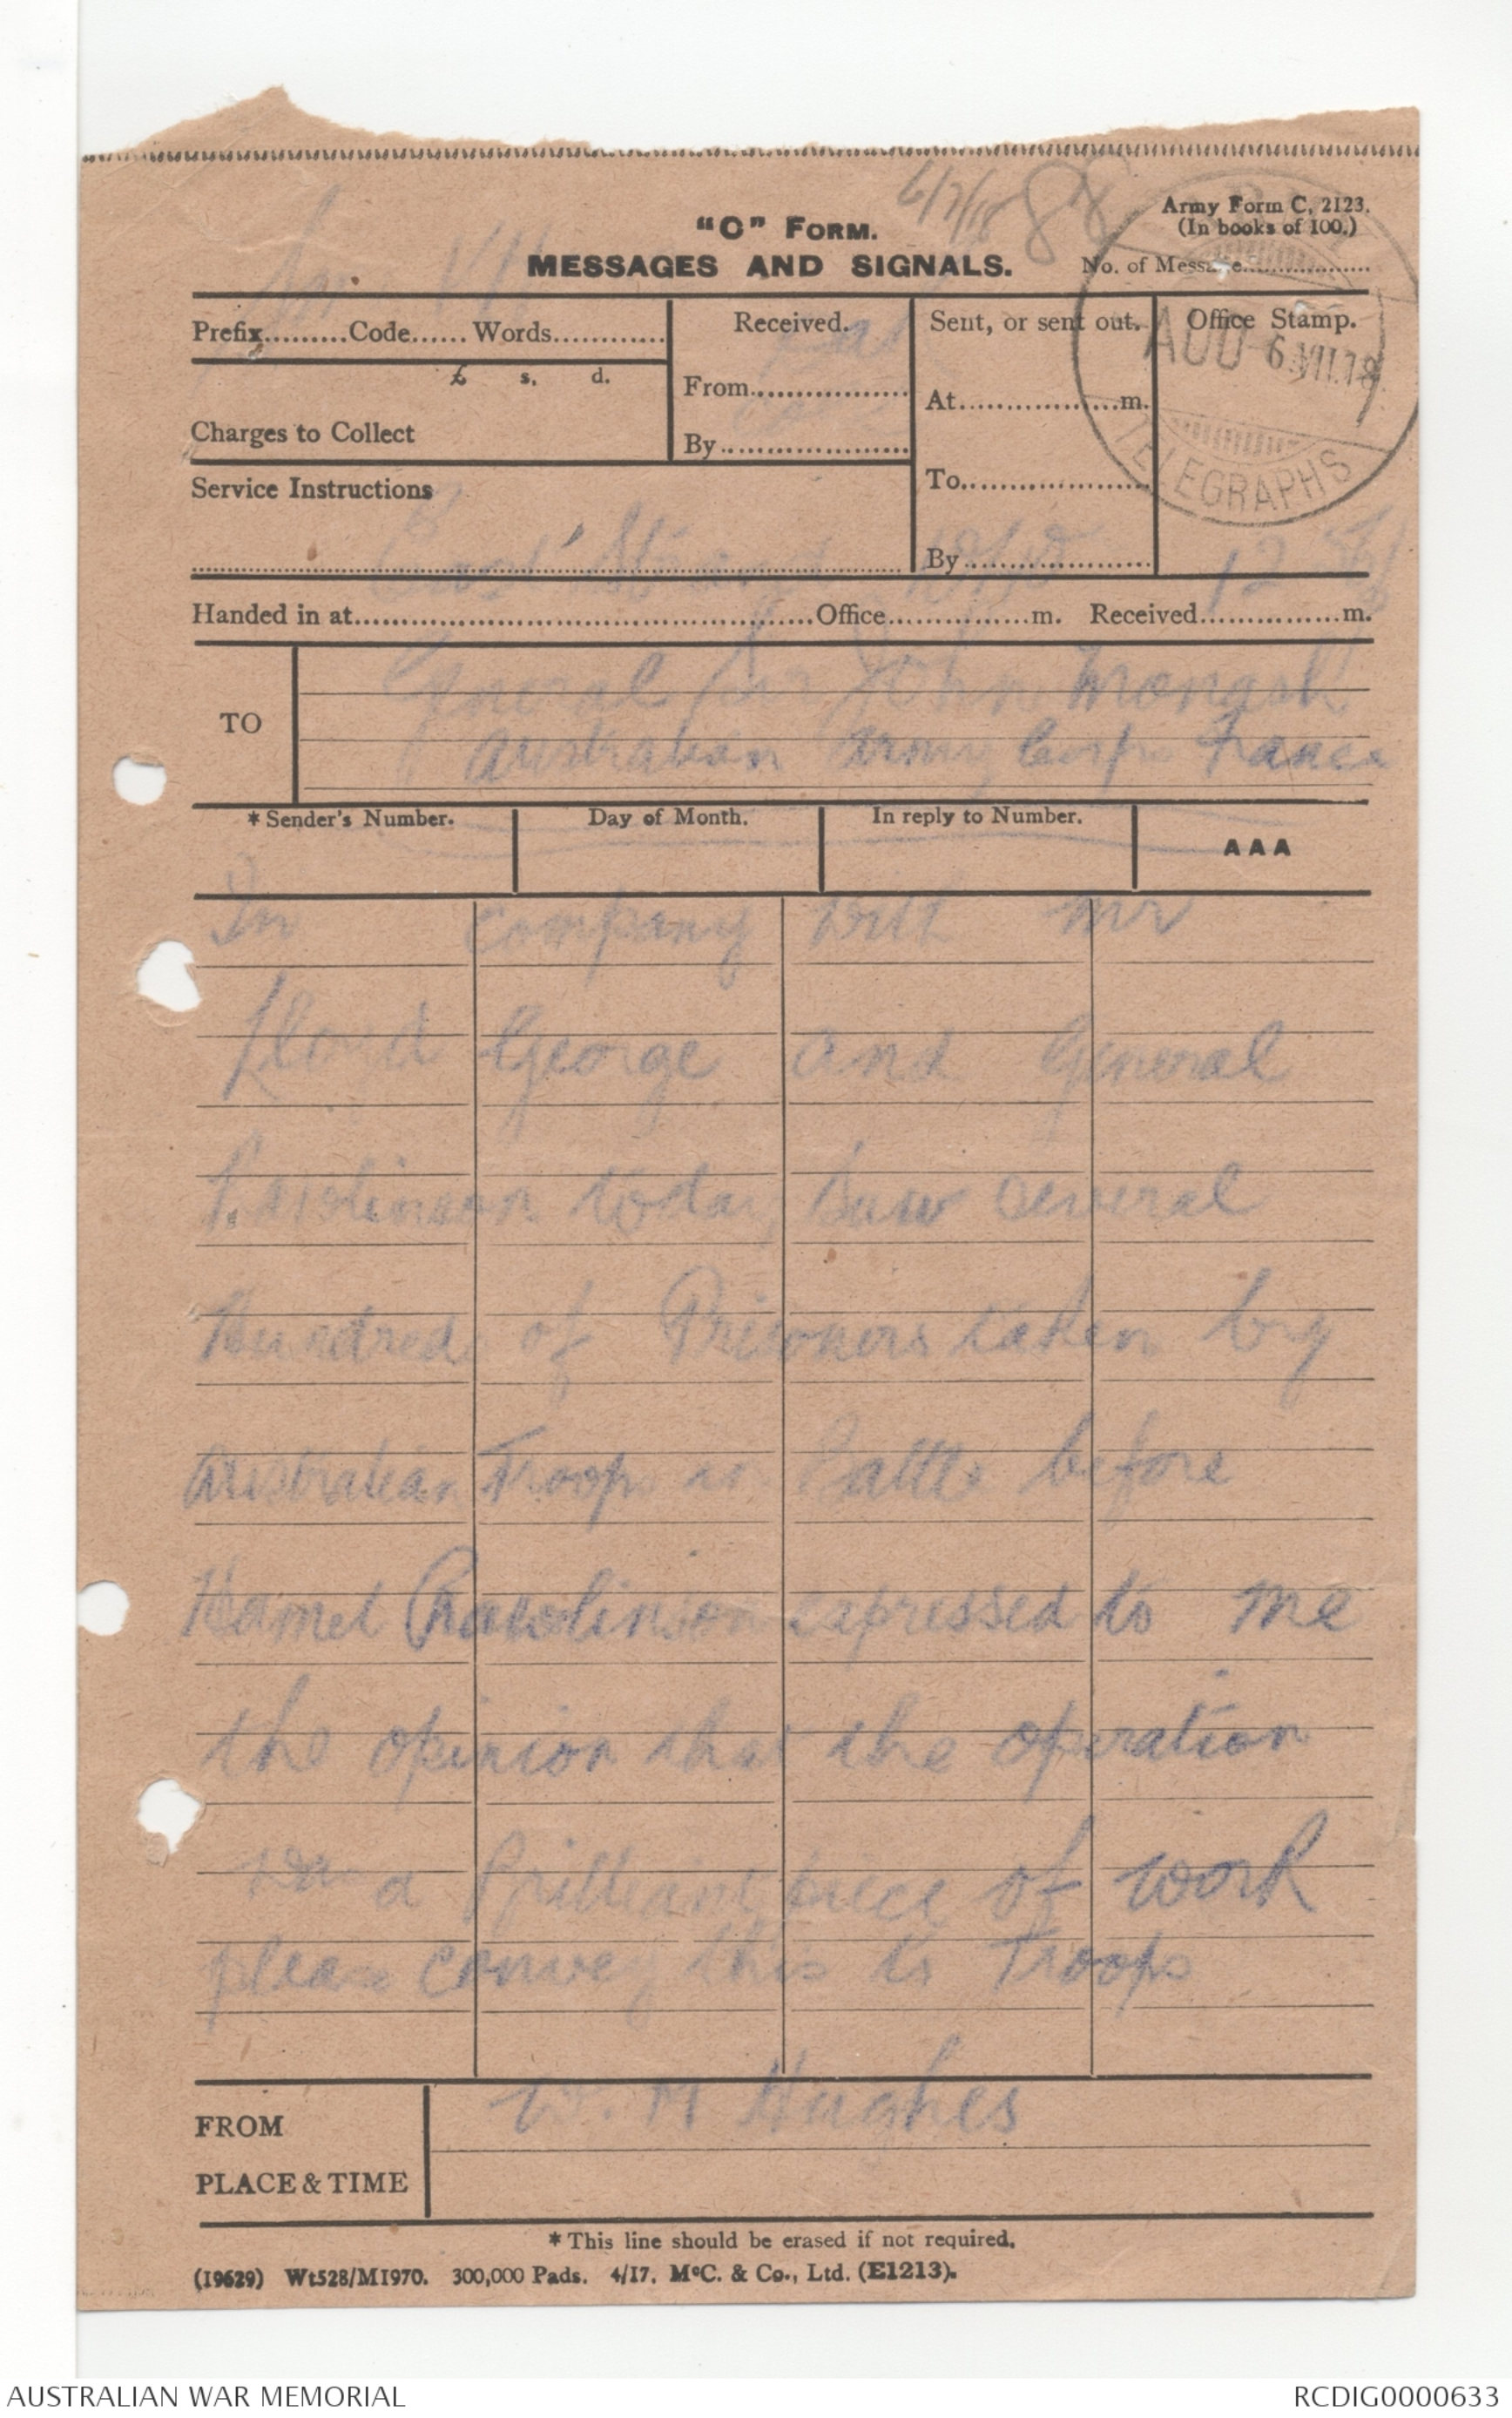 6/7/18 88
"C" FORM.
MESSAGES AND SIGNALS.
Army Form C. 2123.
(In books of 100.)
No. of Message..................
Prefix.........Code...... Words............
£ s. d.
Charges to Collect
Received.
From.................
By.....................
Sent, or sent out.
At..................m.
To....................
By....................
Office Stamp.
6.VII.18
TELEGRAPHS
Service Instructions
Handed in at..................................................Office...............m. Received...............m.
TO
General Sir John Monash
Australian Army Corps France
* Sender's Number.
Day of Month.
In reply to Number.
AAA
In company with Mr
Lloyd George and General
Rawlinson today saw several
Hundred of Prisoners taken by
Australian Troops in Battle before
Hamel Rawlinson expressed to me
the opinion that the operation
was a Brilliant piece of work
please convey this to Troops
FROM
W. M Hughes
PLACE & TIME
* This line should be erased if not required.
(19629) Wt528/M1970. 300,000 Pads. 4/17. McC. & Co., Ltd. (E1213).
AUSTRALIAN WAR MEMORIAL
RCDIG0000633